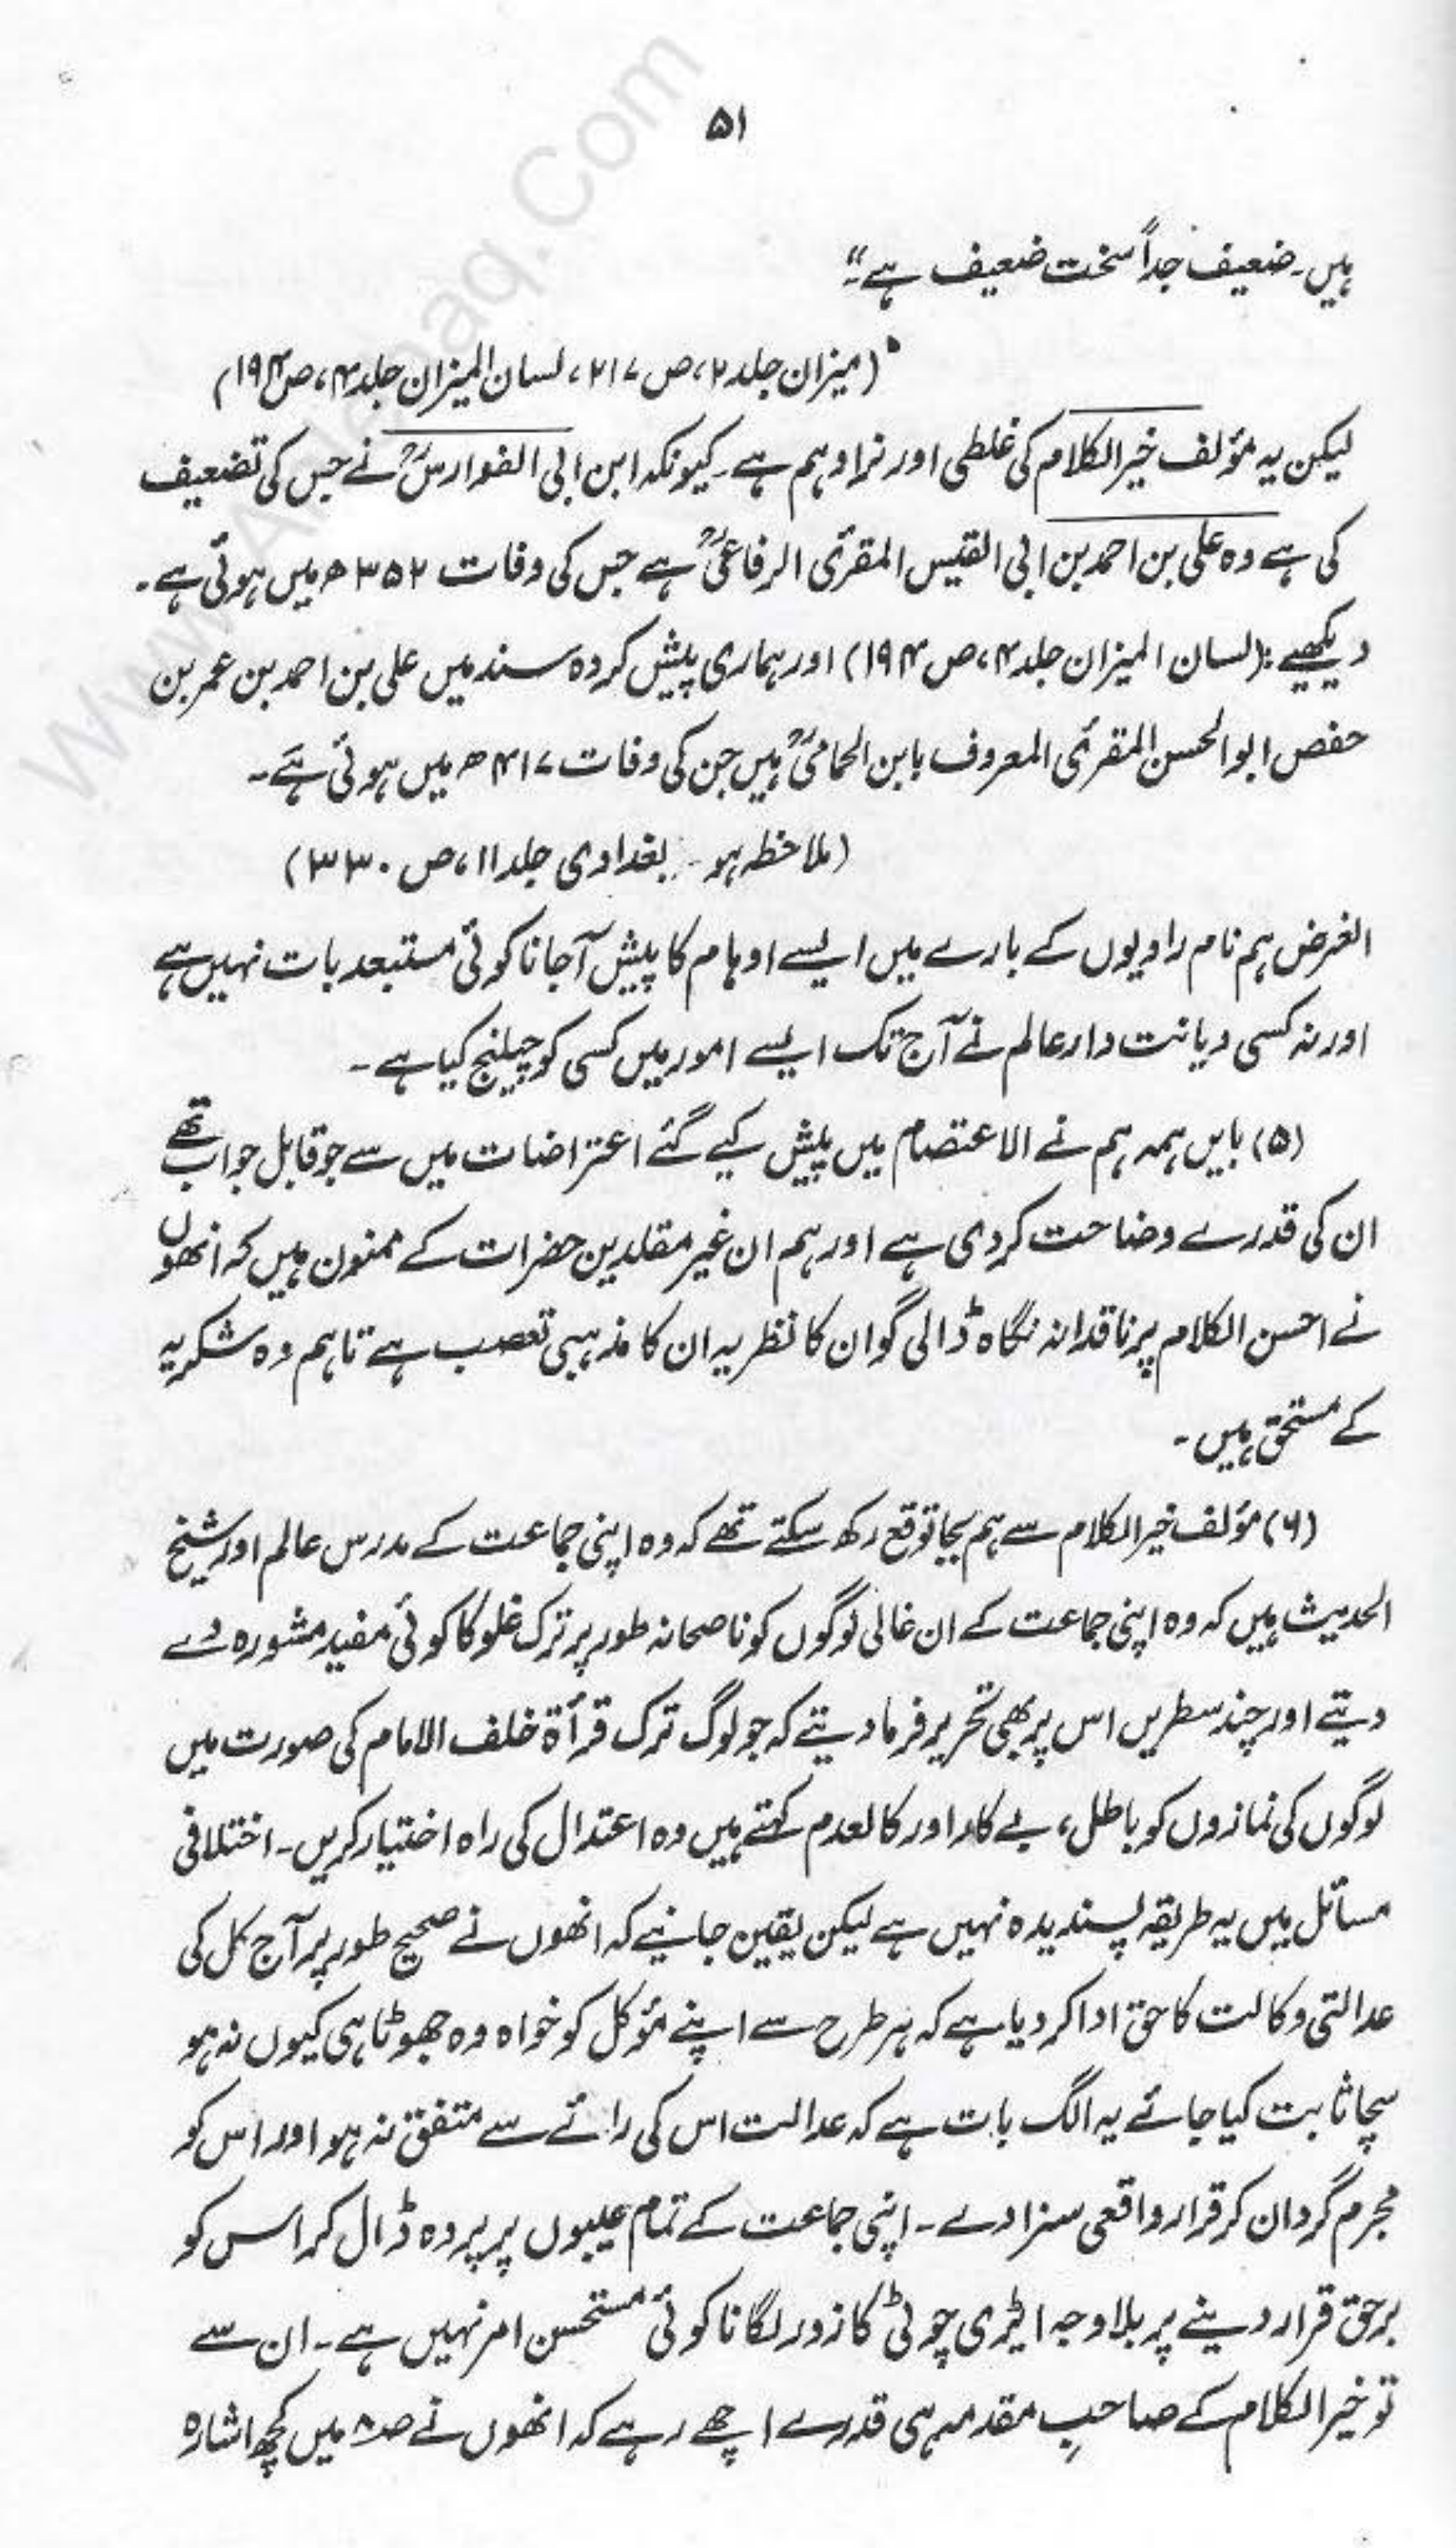 ۵۱
ہیں۔ ضعیف جداً سخت ضعیف ہے۔"
(میزان جلد ۲، ص ۲۱۷، لسان المیزان جلد ۴، ص ۱۹۴)
لیکن یہ مؤلف خیر الکلام کی غلطی اور نرا وہم ہے۔ کیونکہ ابن ابی الفوارسؒ نے جس کی تضعیف
کی ہے وہ علی بن احمد بن ابی القیس المقرئ الرفاعیؒ ہے جس کی وفات ۳۵۲ھ میں ہوئی ہے۔
دیکھیے: (لسان المیزان جلد ۴، ص ۱۹۴) اور ہماری پیش کردہ سند میں علی بن احمد بن عمر بن
حفص ابو الحسن المقرئ المعروف بابن الحمامیؒ ہیں جن کی وفات ۴۱۷ھ میں ہوئی ہے۔
(ملاحظہ ہو۔ بغدادی جلد ۱۱، ص ۳۳۰)
الغرض ہم نام راویوں کے بارے میں ایسے اوہام کا پیش آجانا کوئی مستبعد بات نہیں ہے
اور نہ کسی دیانت دار عالم نے آج تک ایسے امور میں کسی کو چیلنج کیا ہے۔
(۵) بایں ہمہ ہم نے الاعتصام میں پیش کیے گئے اعتراضات میں سے جو قابل جواب تھے
ان کی قدرے وضاحت کردی ہے اور ہم ان غیر مقلدین حضرات کے ممنون ہیں کہ انھوں
نے احسن الکلام پر ناقدانہ نگاہ ڈالی گو ان کا نظریہ ان کا مذہبی تعصب ہے تاہم وہ شکریہ
کے مستحق ہیں۔
(۶) مؤلف خیر الکلام سے ہم بجا توقع رکھ سکتے تھے کہ وہ اپنی جماعت کے مدرس عالم اور شیخ
الحدیث ہیں کہ وہ اپنی جماعت کے ان غالی لوگوں کو ناصحانہ طور پر ترک غلو کا کوئی مفید مشورہ دے
دیتے اور چند سطریں اس پر بھی تحریر فرما دیتے کہ جو لوگ ترک قرأة خلف الامام کی صورت میں
لوگوں کی نمازوں کو باطل، بے کار اور کالعدم کہتے ہیں وہ اعتدال کی راہ اختیار کریں۔ اختلافی
مسائل میں یہ طریقہ پسندیدہ نہیں ہے لیکن یقین جانیے کہ انھوں نے صحیح طور پر آج کل کی
عدالتی وکالت کا حق ادا کر دیا ہے کہ ہر طرح سے اپنے مؤکل کو خواہ وہ جھوٹا ہی کیوں نہ ہو
سچا ثابت کیا جائے یہ الگ بات ہے کہ عدالت اس کی رائے سے متفق نہ ہو اور اس کو
مجرم گردان کر قرار واقعی سزا دے۔ اپنی جماعت کے تمام عیبوں پر پردہ ڈال کر اس کو
برحق قرار دینے پر بلاوجہ ایڑی چوٹی کا زور لگانا کوئی مستحسن امر نہیں ہے۔ ان سے
تو خیر الکلام کے صاحبِ مقدمہ ہی قدرے اچھے رہے کہ انھوں نے ص۸ میں کچھ اشارہ